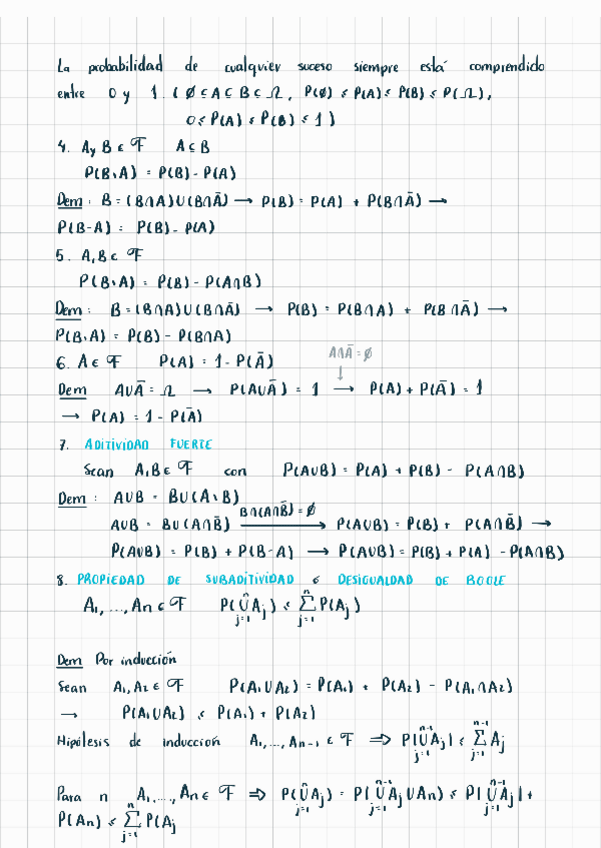 La probabilidad de cualquier suceso siempre está comprendido
entre 0 y 1. ( ∅ ⊆ A ⊆ B ⊆ Ω, P(∅) ≤ P(A) ≤ P(B) ≤ P(Ω),
0 ≤ P(A) ≤ P(B) ≤ 1 )
4. A y B ∈ F A ⊆ B
P(B\A) = P(B) - P(A)
Dem: B = (B∩A)∪(B∩Ā) → P(B) = P(A) + P(B∩Ā) →
P(B-A) = P(B) - P(A)
5. A, B ∈ F
P(B\A) = P(B) - P(A∩B)
Dem: B = (B∩A)∪(B∩Ā) → P(B) = P(B∩A) + P(B∩Ā) →
P(B\A) = P(B) - P(B∩A)
6. A ∈ F P(A) = 1 - P(Ā) A∩Ā = ∅
Dem A∪Ā = Ω → P(A∪Ā) = 1 ↓ → P(A) + P(Ā) = 1
→ P(A) = 1 - P(Ā)
7. ADITIVIDAD FUERTE
Sean A, B ∈ F con P(A∪B) = P(A) + P(B) - P(A∩B)
Dem: A∪B = B∪(A\B)
A∪B = B∪(A∩B̄) B∩(A∩B̄) = ∅ → P(A∪B) = P(B) + P(A∩B̄) →
P(A∪B) = P(B) + P(B-A) → P(A∪B) = P(B) + P(A) - P(A∩B)
8. PROPIEDAD DE SUBADITIVIDAD ó DESIGUALDAD DE BOOLE
A₁, ..., An ∈ F P(⋃ⁿⱼ₌₁ Aj) ≤ ∑ⁿⱼ₌₁ P(Aj)
Dem Por inducción
Sean A₁, A₂ ∈ F P(A₁∪A₂) = P(A₁) + P(A₂) - P(A₁∩A₂)
→ P(A₁∪A₂) ≤ P(A₁) + P(A₂)
Hipótesis de inducción A₁, ..., An-1 ∈ F ⇒ P(⋃ⁿ⁻¹ⱼ₌₁ Aj) ≤ ∑ⁿ⁻¹ⱼ₌₁ Aj
Para n A₁, ..., An ∈ F ⇒ P(⋃ⁿⱼ₌₁ Aj) = P(⋃ⁿ⁻¹ⱼ₌₁ Aj ∪ An) ≤ P(⋃ⁿ⁻¹ⱼ₌₁ Aj) +
P(An) ≤ ∑ⁿⱼ₌₁ P(Aj